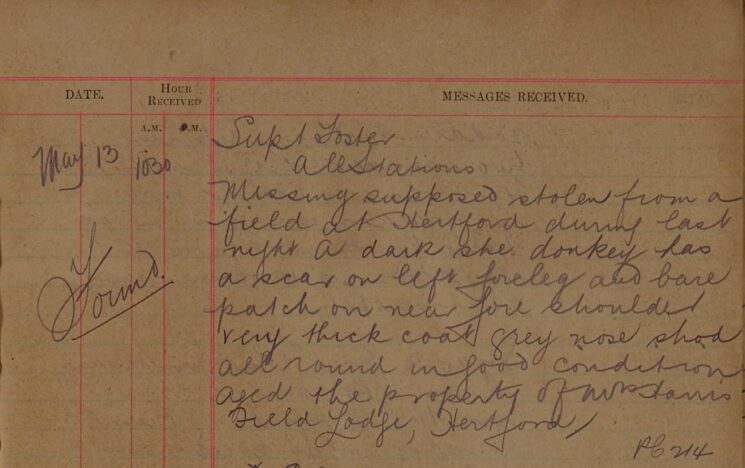 DATE.
HOUR RECEIVED
MESSAGES RECEIVED.
A.M. P.M.
May 13 1030
Supt Foster
All Stations
Missing supposed stolen from a
field at Hertford during last
night A dark she donkey has
a scar on left foreleg and bare
patch on near fore shoulder
very thick coat grey nose shod
all round in good condition
aged the property of Mr Harris
Field Lodge, Hertford
Found.
PC 214